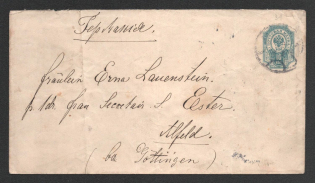 Германія.
Fräulein Erna Lauenstein.
p. Adr. Frau Secretair L. Ester.
Alfeld.
(bei Göttingen)